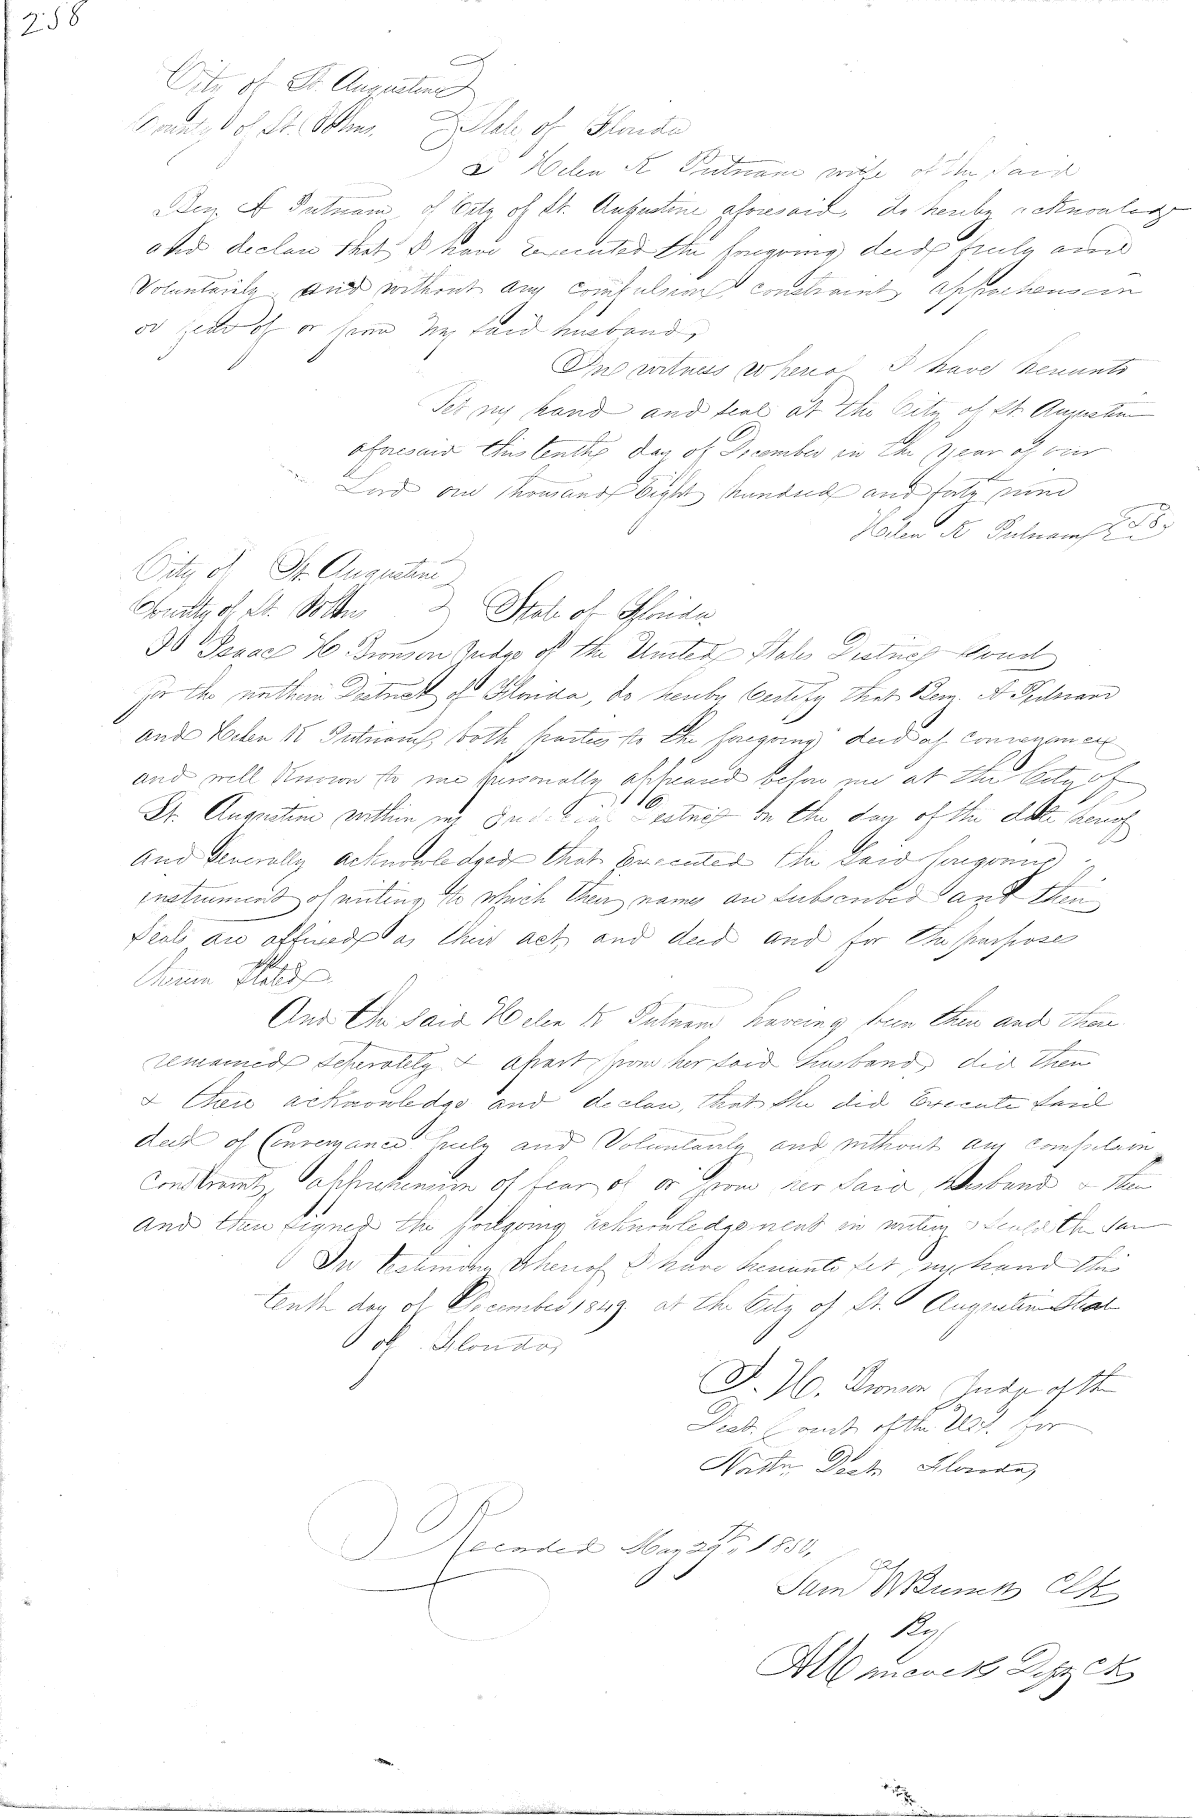 258
City of St. Augustine
County of St. Johns. State of Florida
I Helen K Putnam wife of the said
Benj A Putnam, of City of St. Augustine aforesaid, do hereby acknowledge
and declare that I have Executed the foregoing deed freely and
Voluntarily, and without any compulsion, constraint, apprehension
or fear of or from my said husband,
In witness whereof I have hereunto
Set my hand and seal at the City of St. Augustine
aforesaid this tenth day of December in the year of our
Lord one thousand Eight hundred and forty nine
Helen K Putnam LS.
City of St. Augustine
County of St. Johns State of Florida
I Isaac H. Bronson Judge of the United States District Court
for the northern District of Florida, do hereby Certify that Benj. A Putnam
and Helen K Putnam, both parties to the foregoing deed of conveyance
and well Known to me personally appeared before me at the City of
St. Augustine within my Judicial District on the day of the date hereof
and Severally acknowledged that Executed the Said foregoing
instrument of writing to which their names are subscribed and their
Seals are affixed as their act and deed and for the purposes
therein Stated.
And the said Helen K Putnam haveing been then and there
seperately & apart from her said husband, did then
& there acknowledge and declare, that she did Execute said
deed of Conveyance freely and Voluntarily and without any compulsion
constraint, apprehension of fear of or from her Said husband & then
and there signed the foregoing acknowledgement in writing & sealed the same
In testimony whereof I have hereunto set my hand this
tenth day of December 1849 at the City of St. Augustine State
of Florida,
I. H. Bronson Judge of the
Dist. Court of the U.S. for
North. Dist. Florida,
Recorded May 29th, 1850,
Clk
By
Depy Clk